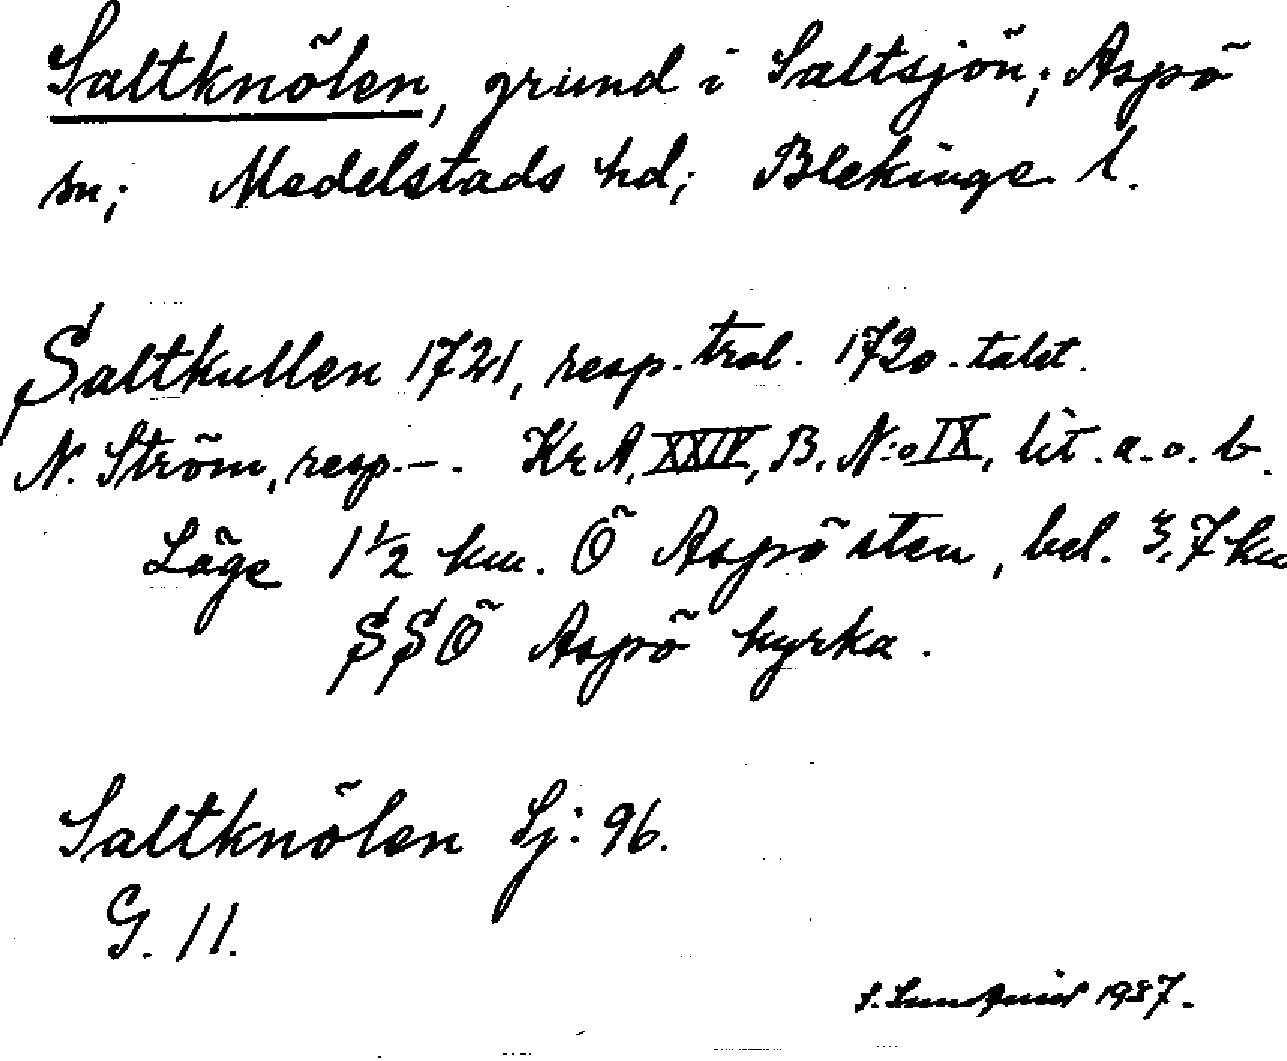 Saltknölen, grund i Saltsjön; Aspö
sn; Medelstads hd; Blekinge l.
Saltkullen 1721, resp. trol. 1720-talet.
N. Ström, resp. —. Kr A, XXIV, B. N:o IX, lit. a. o. b.
Läge 1 1/2 km. Ö Aspösten, bel. 3,7 km
SSÖ Aspö kyrka.
Saltknölen Sj: 96.
G. 11.
S. Lundquist 1937.